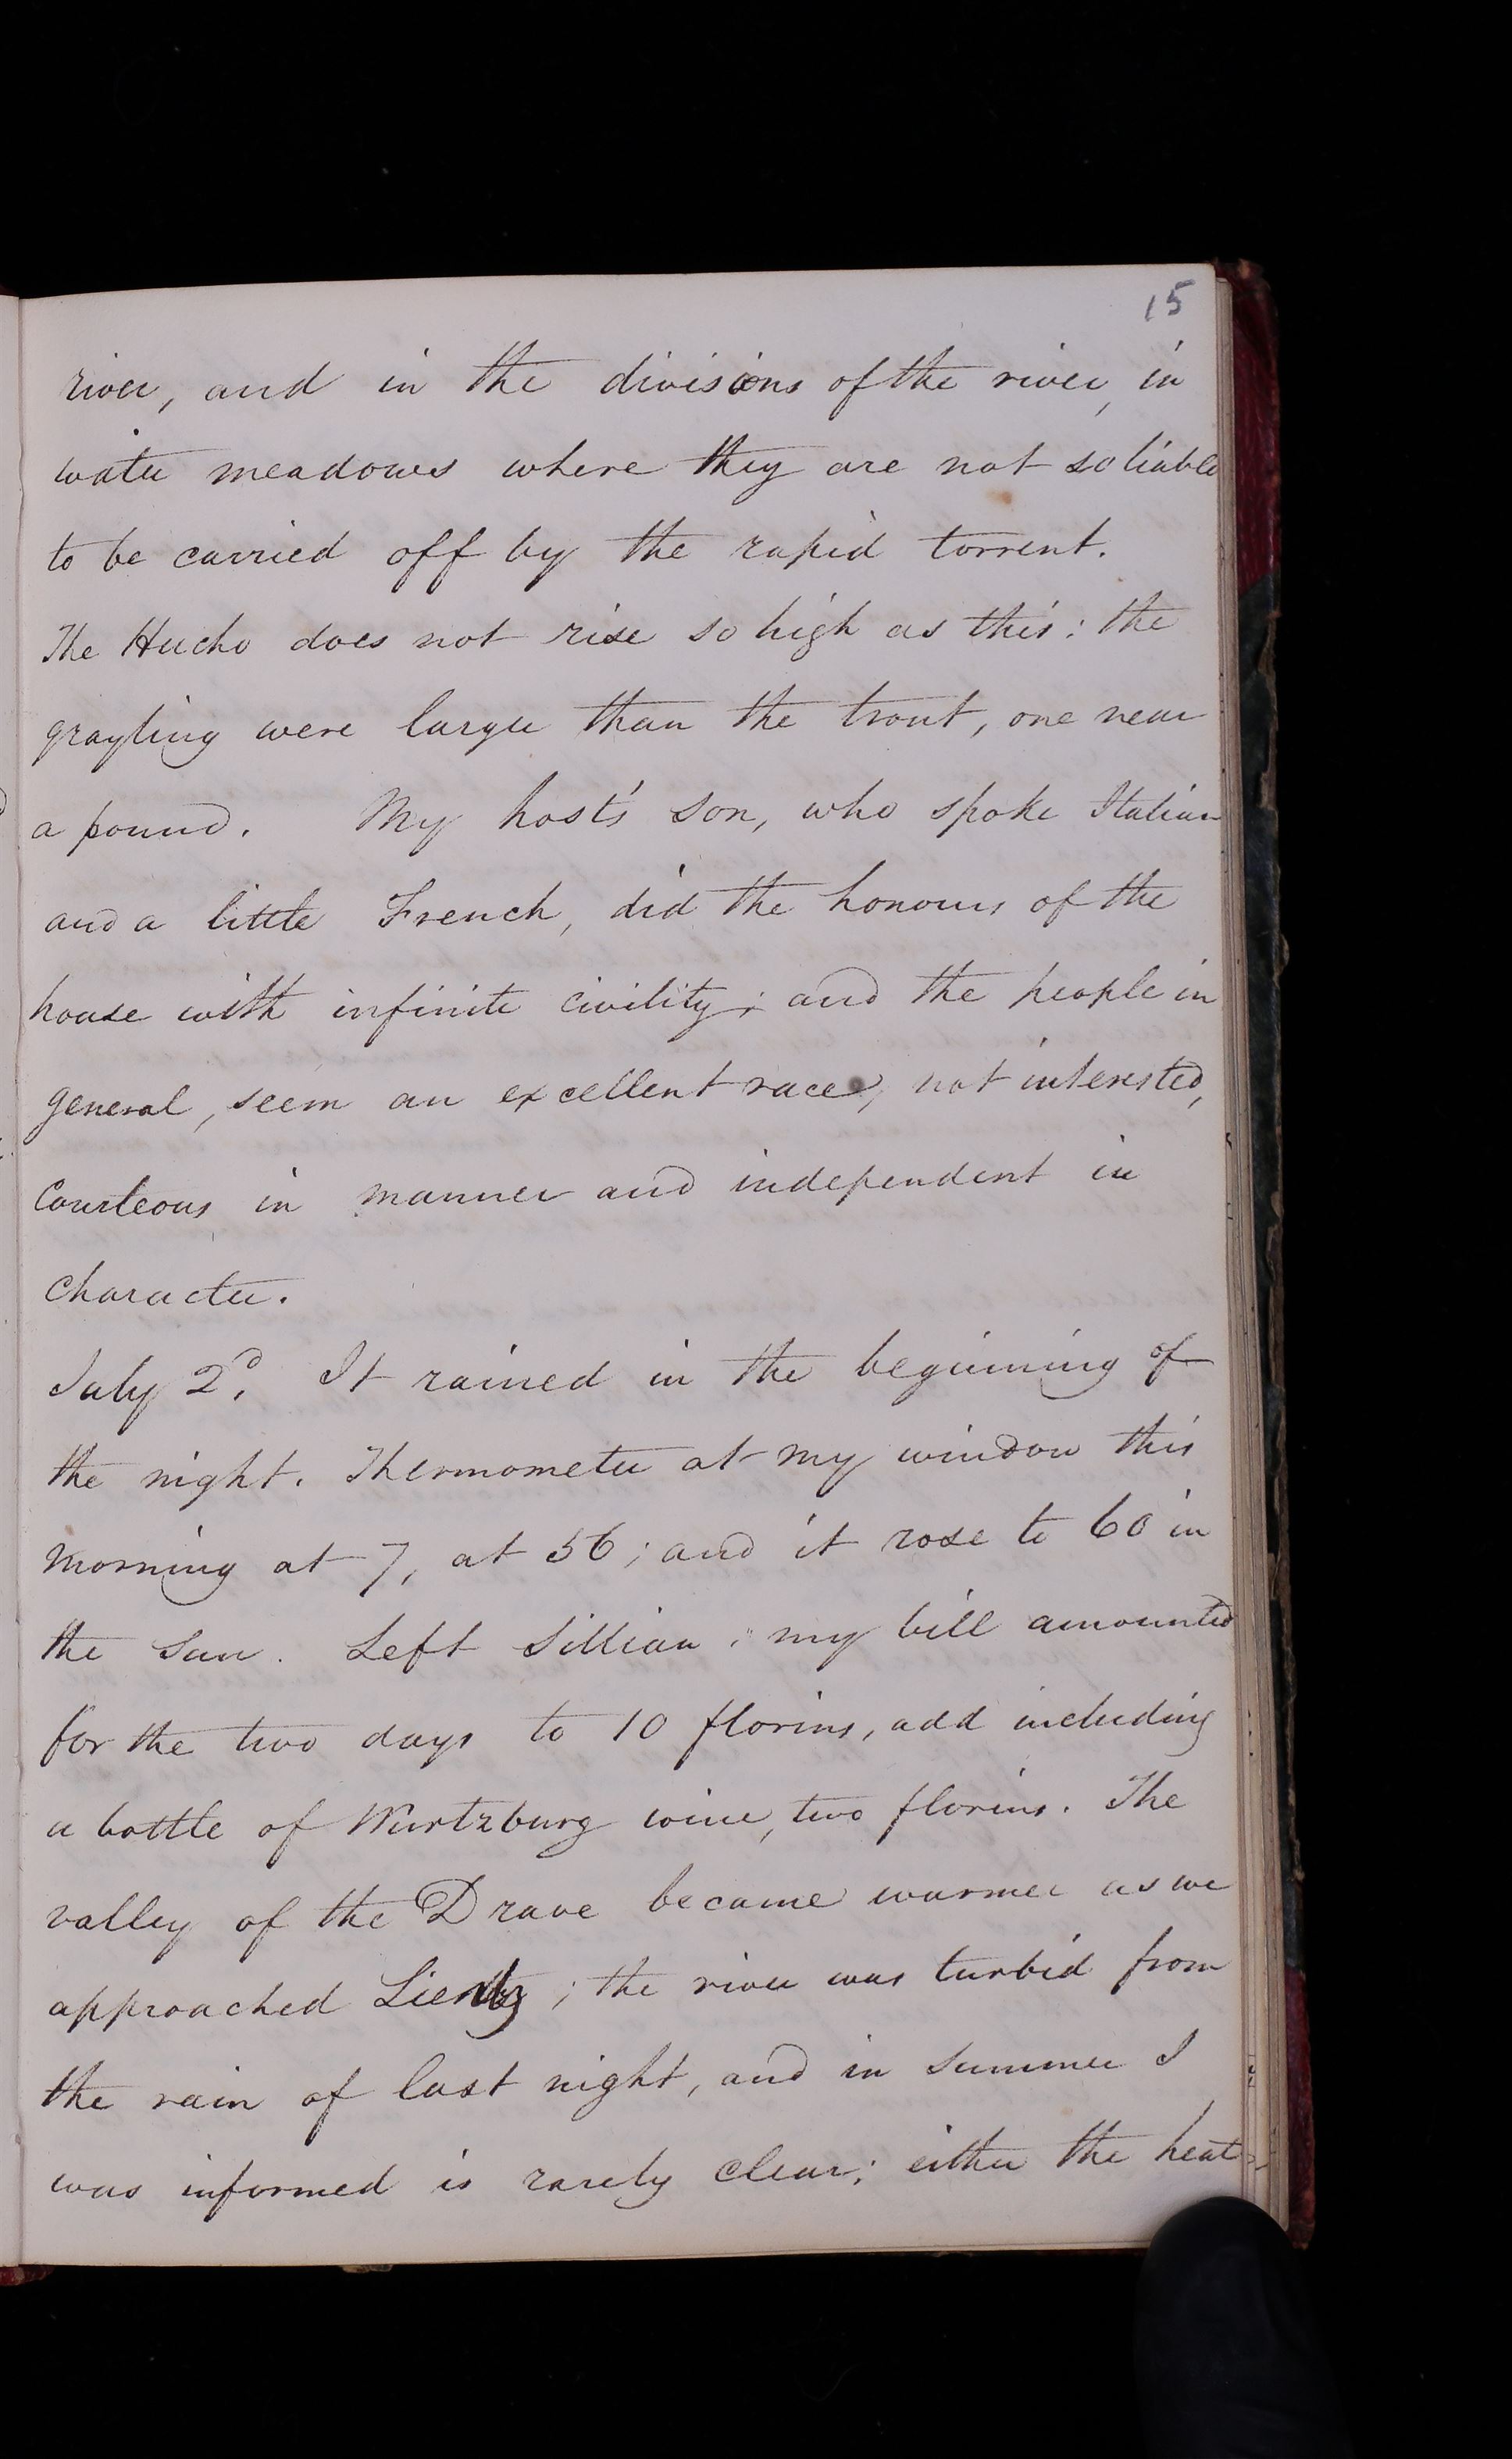 15
river, and in the divisions of the river, in
water meadows where they are not so liable
to be carried off by the rapid torrent.
The Hucho does not rise so high as this: the
grayling were larger than the trout, one near
a pound. My host's son, who spoke Italian
and a little French, did the honours of the
house with infinite civility; and the people in
general, seem an excellent race, not interested,
courteous in manner and independent in
character.
July 2d. It rained in the beginning of
the night. Thermometer at my window this
morning at 7, at 56; and it rose to 60 in
the sun. Left Sillian; my bill amounted
for the two days to 10 florins, add including
a bottle of Wurtzburg wine, two florins. The
valley of the Drave became warmer as we
approached Lientz; the river was turbid from
the rain of last night, and in summer I
was informed is rarely clear; either the heat